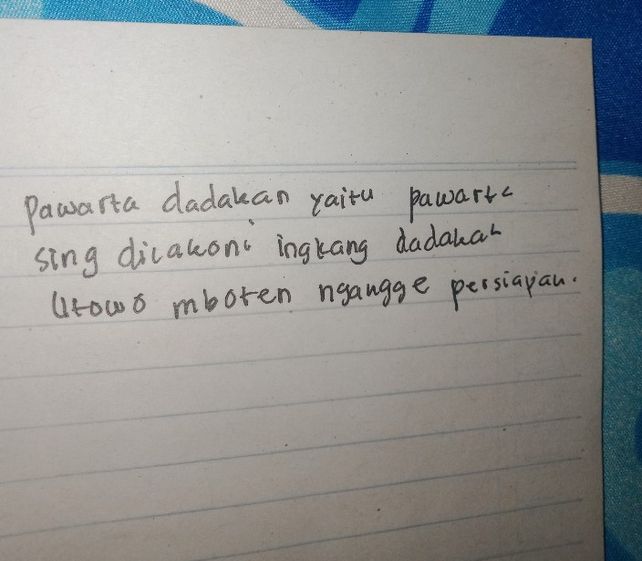 Pawarta dadakan yaitu pawarta
sing dilakoni ingkang dadakan
Utowo mboten ngangge persiapan.